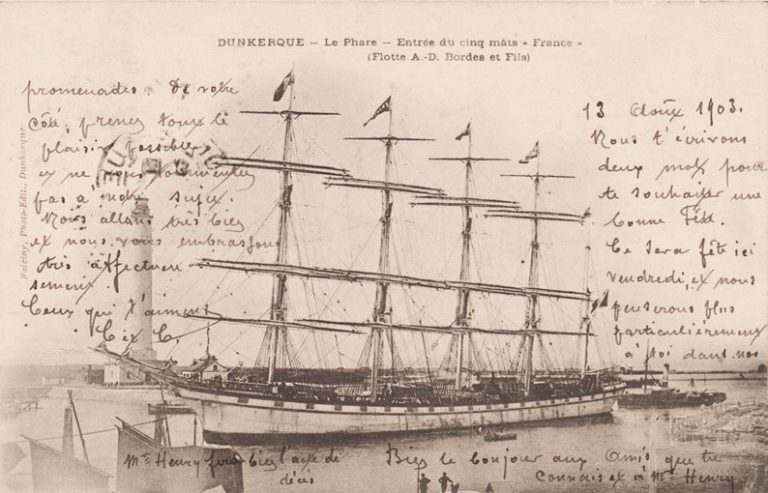 DUNKERQUE – Le Phare – Entrée du cinq mâts « France »
(Flotte A.-D. Bordes et Fils)
13 Août 1903.
Nous t'écrivons
deux mots pour
te souhaiter une
bonne Fête.
Ce sera fête ici
vendredi, et nous
penserons plus
particulièrement
à toi dans nos
promenades. De votre
côté, prenez tous le
plaisir possible
et ne vous tourmentez
pas à notre sujet.
Nous allons très bien
et nous vous embrassons
très affectueu
sement.
Ceux qui t'aiment
C et C.
Mr Henry fera bien l'acte de
décès
Bien le bonjour aux Amis que tu
connais et à Mr Henry
Photo-Edit., Dunkerque